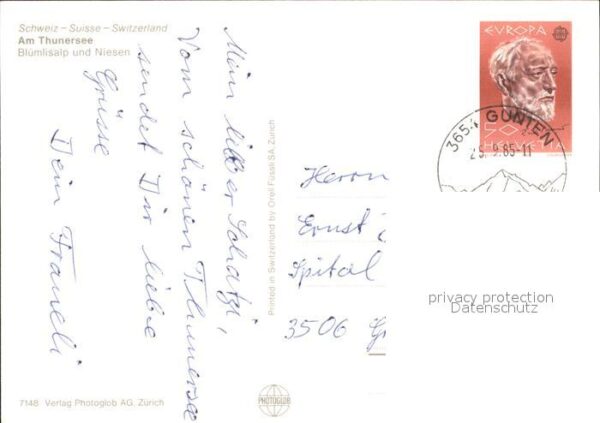 Schweiz – Suisse – Switzerland
Am Thunersee
Blümlisalp und Niesen
Mein lieber Schatzi,
Vom schönen Thunersee
sendet Dir liebe
Grüsse
Dein
7148 Verlag Photoglob AG, Zürich
PHOTOGLOB
Printed in Switzerland by Orell Füssli SA, Zürich
EUROPA
50
HELVETIA
3654 GUNTEN
9.85-11
Herrn
Ernst
Spital
3506
privacy protection
Datenschutz